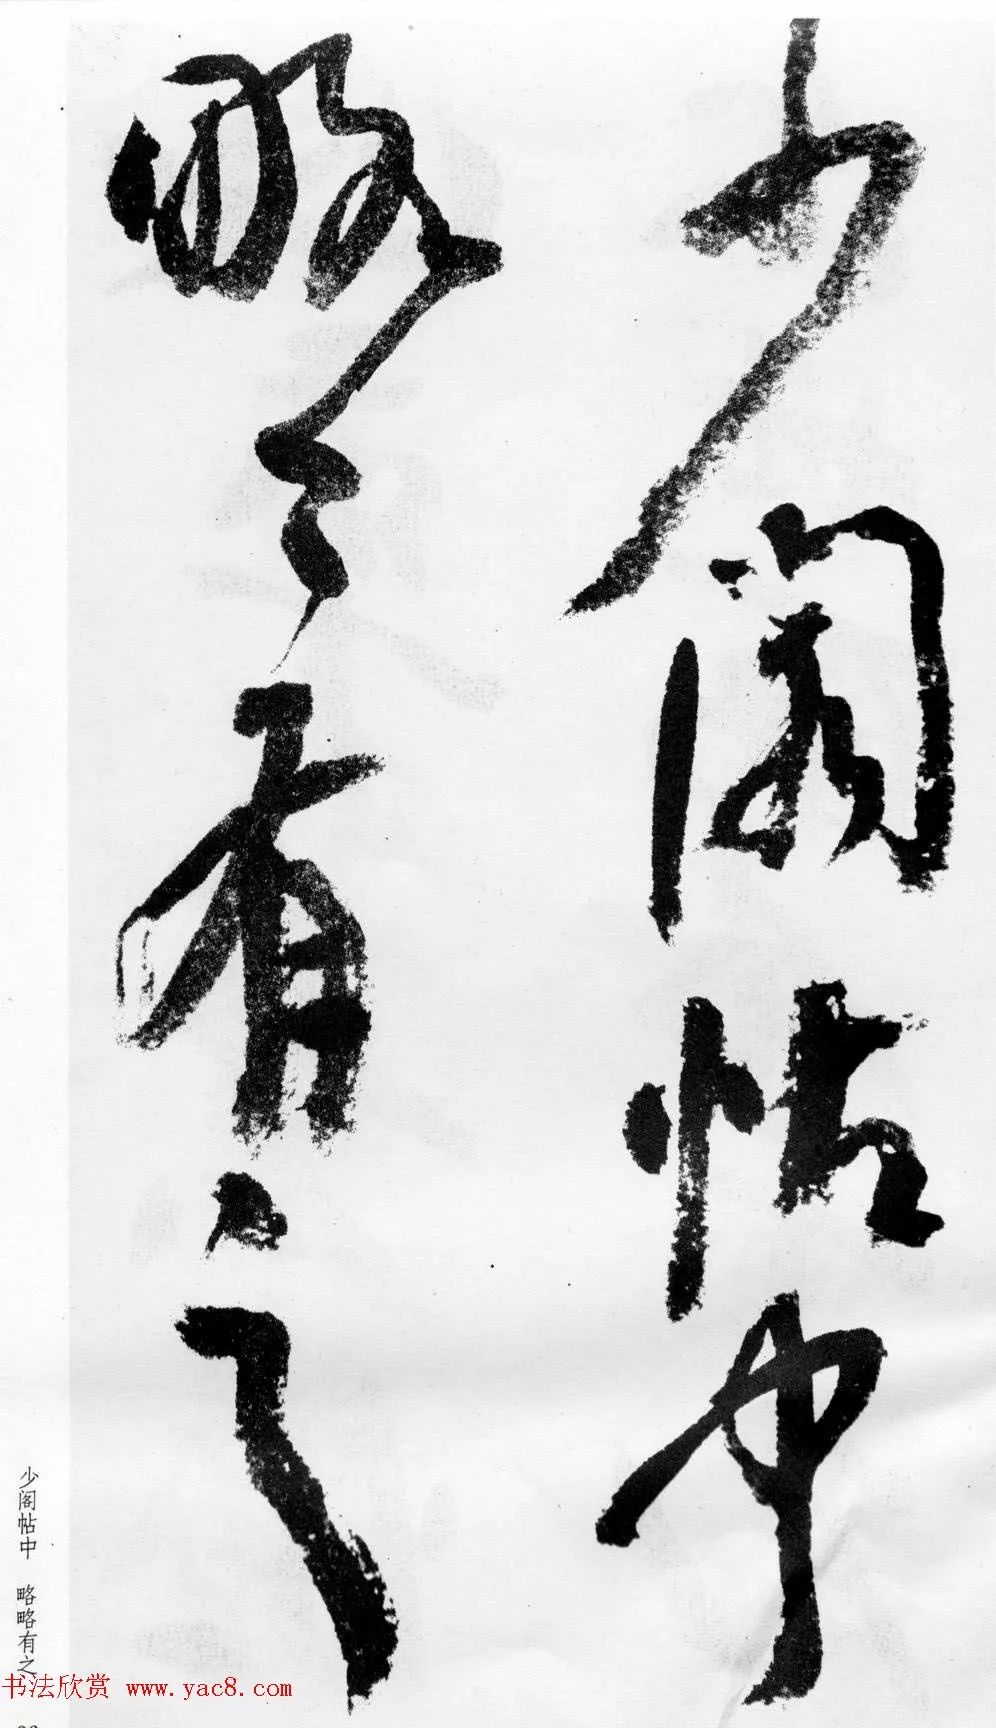 少阁帖中
略々有之
少阁帖中 略略有之
书法欣赏 www.yac8.com